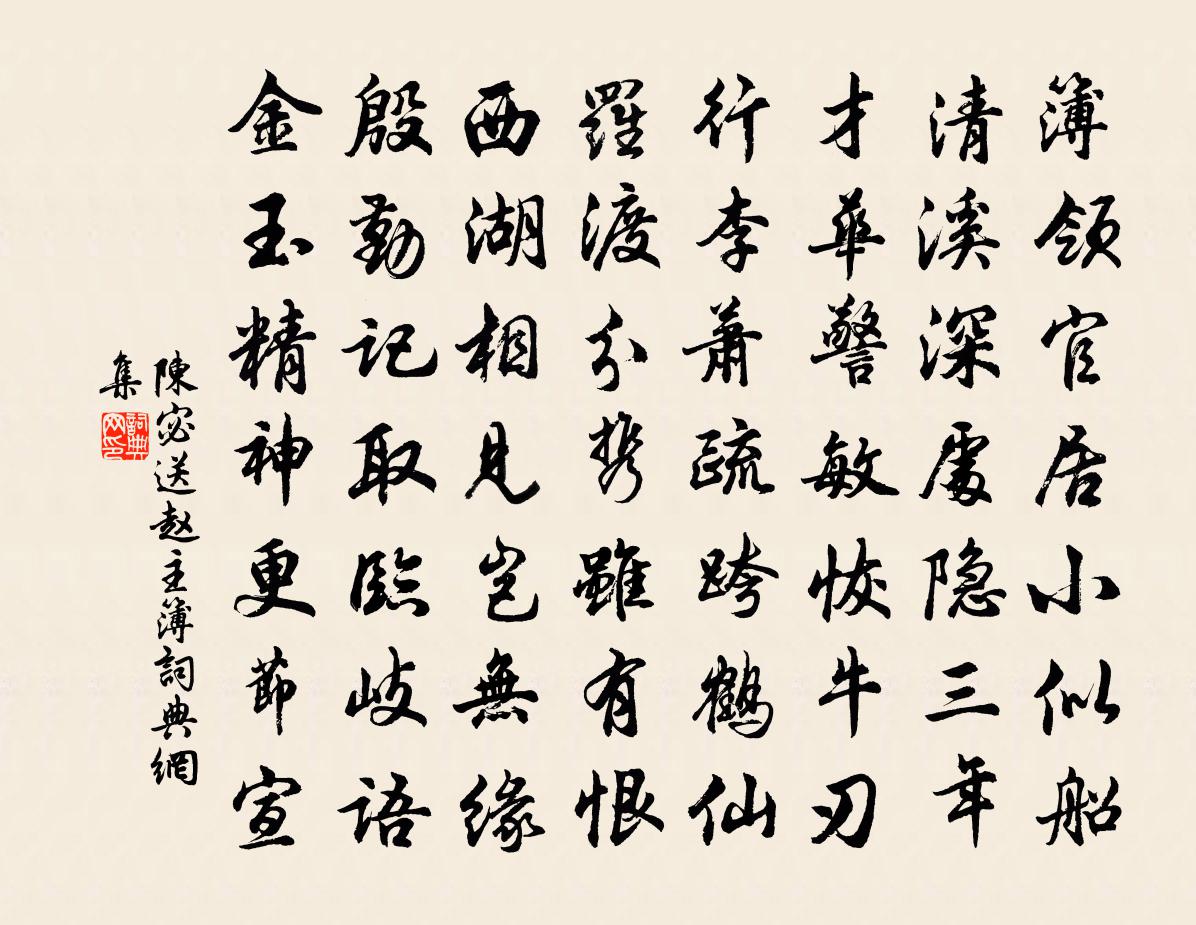 簿領官居小似船
清溪深處隐三年
才華警敏恢牛刃
行李蕭疏跨鶴仙
羅渡分携雖有恨
西湖相見豈無緣
殷勤記取臨岐語
金玉精神更節宣
陳宓送赵主簿詞典網
集
詞典网印